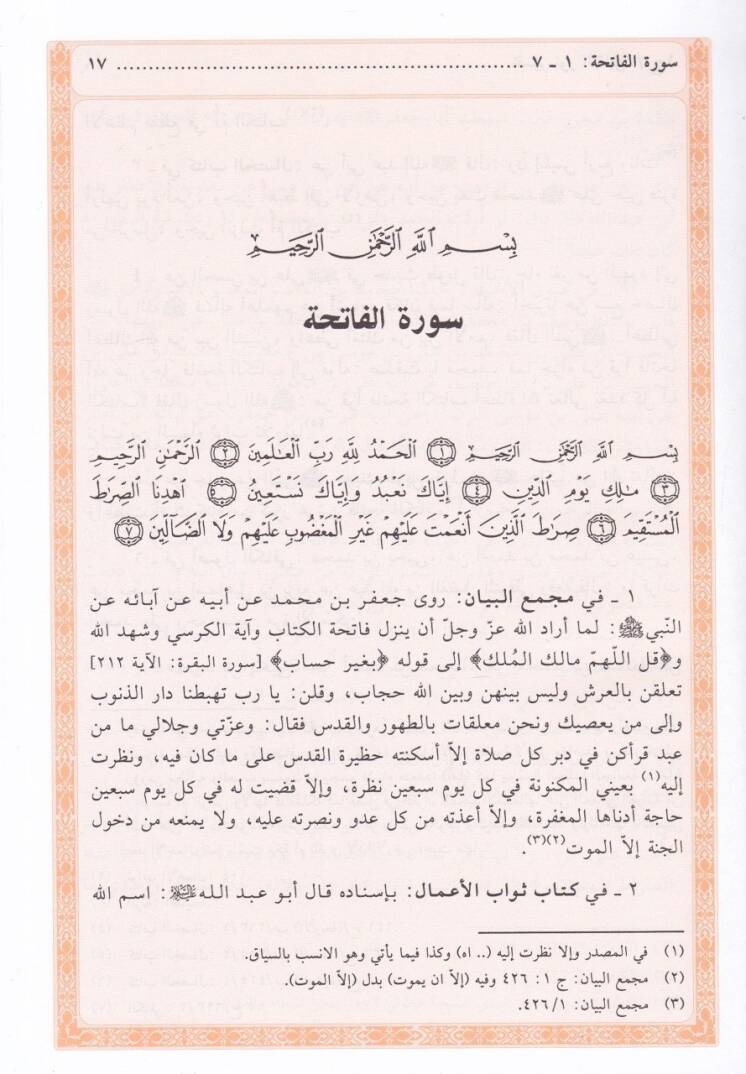 سورة الفاتحة: ١ ـ ٧ ................................................................ ١٧
بِسْمِ ٱللَّهِ ٱلرَّحْمَٰنِ ٱلرَّحِيمِ
سورة الفاتحة
بِسْمِ ٱللَّهِ ٱلرَّحْمَٰنِ ٱلرَّحِيمِ ﴿١﴾ ٱلْحَمْدُ لِلَّهِ رَبِّ ٱلْعَٰلَمِينَ ﴿٢﴾ ٱلرَّحْمَٰنِ ٱلرَّحِيمِ
﴿٣﴾ مَٰلِكِ يَوْمِ ٱلدِّينِ ﴿٤﴾ إِيَّاكَ نَعْبُدُ وَإِيَّاكَ نَسْتَعِينُ ﴿٥﴾ ٱهْدِنَا ٱلصِّرَٰطَ
ٱلْمُسْتَقِيمَ ﴿٦﴾ صِرَٰطَ ٱلَّذِينَ أَنْعَمْتَ عَلَيْهِمْ غَيْرِ ٱلْمَغْضُوبِ عَلَيْهِمْ وَلَا ٱلضَّآلِّينَ ﴿٧﴾
١ ـ في مجمع البيان: روى جعفر بن محمد عن أبيه عن آبائه عن
النبي ﷺ: لما أراد الله عزّ وجلّ أن ينزل فاتحة الكتاب وآية الكرسي وشهد الله
و﴿قل اللّهمّ مالك المُلك﴾ إلى قوله ﴿بغير حساب﴾ [سورة البقرة: الآية ٢١٢]
تعلقن بالعرش وليس بينهن وبين الله حجاب، وقلن: يا رب تهبطنا دار الذنوب
وإلى من يعصيك ونحن معلقات بالطهور والقدس فقال: وعزّتي وجلالي ما من
عبد قرأكن في دبر كل صلاة إلاّ أسكنته حظيرة القدس على ما كان فيه، ونظرت
إليه(١) بعيني المكنونة في كل يوم سبعين نظرة، وإلاّ قضيت له في كل يوم سبعين
حاجة أدناها المغفرة، وإلاّ أعذته من كل عدو ونصرته عليه، ولا يمنعه من دخول
الجنة إلاّ الموت(٢)(٣).
٢ ـ في كتاب ثواب الأعمال: بإسناده قال أبو عبد الله عليه السلام: اسم الله
(١) في المصدر وإلا نظرت إليه (.. اه) وكذا فيما يأتي وهو الانسب بالسياق.
(٢) مجمع البيان: ج ١: ٤٢٦ وفيه (إلاّ ان يموت) بدل (إلاّ الموت).
(٣) مجمع البيان: ٤٢٦/١.